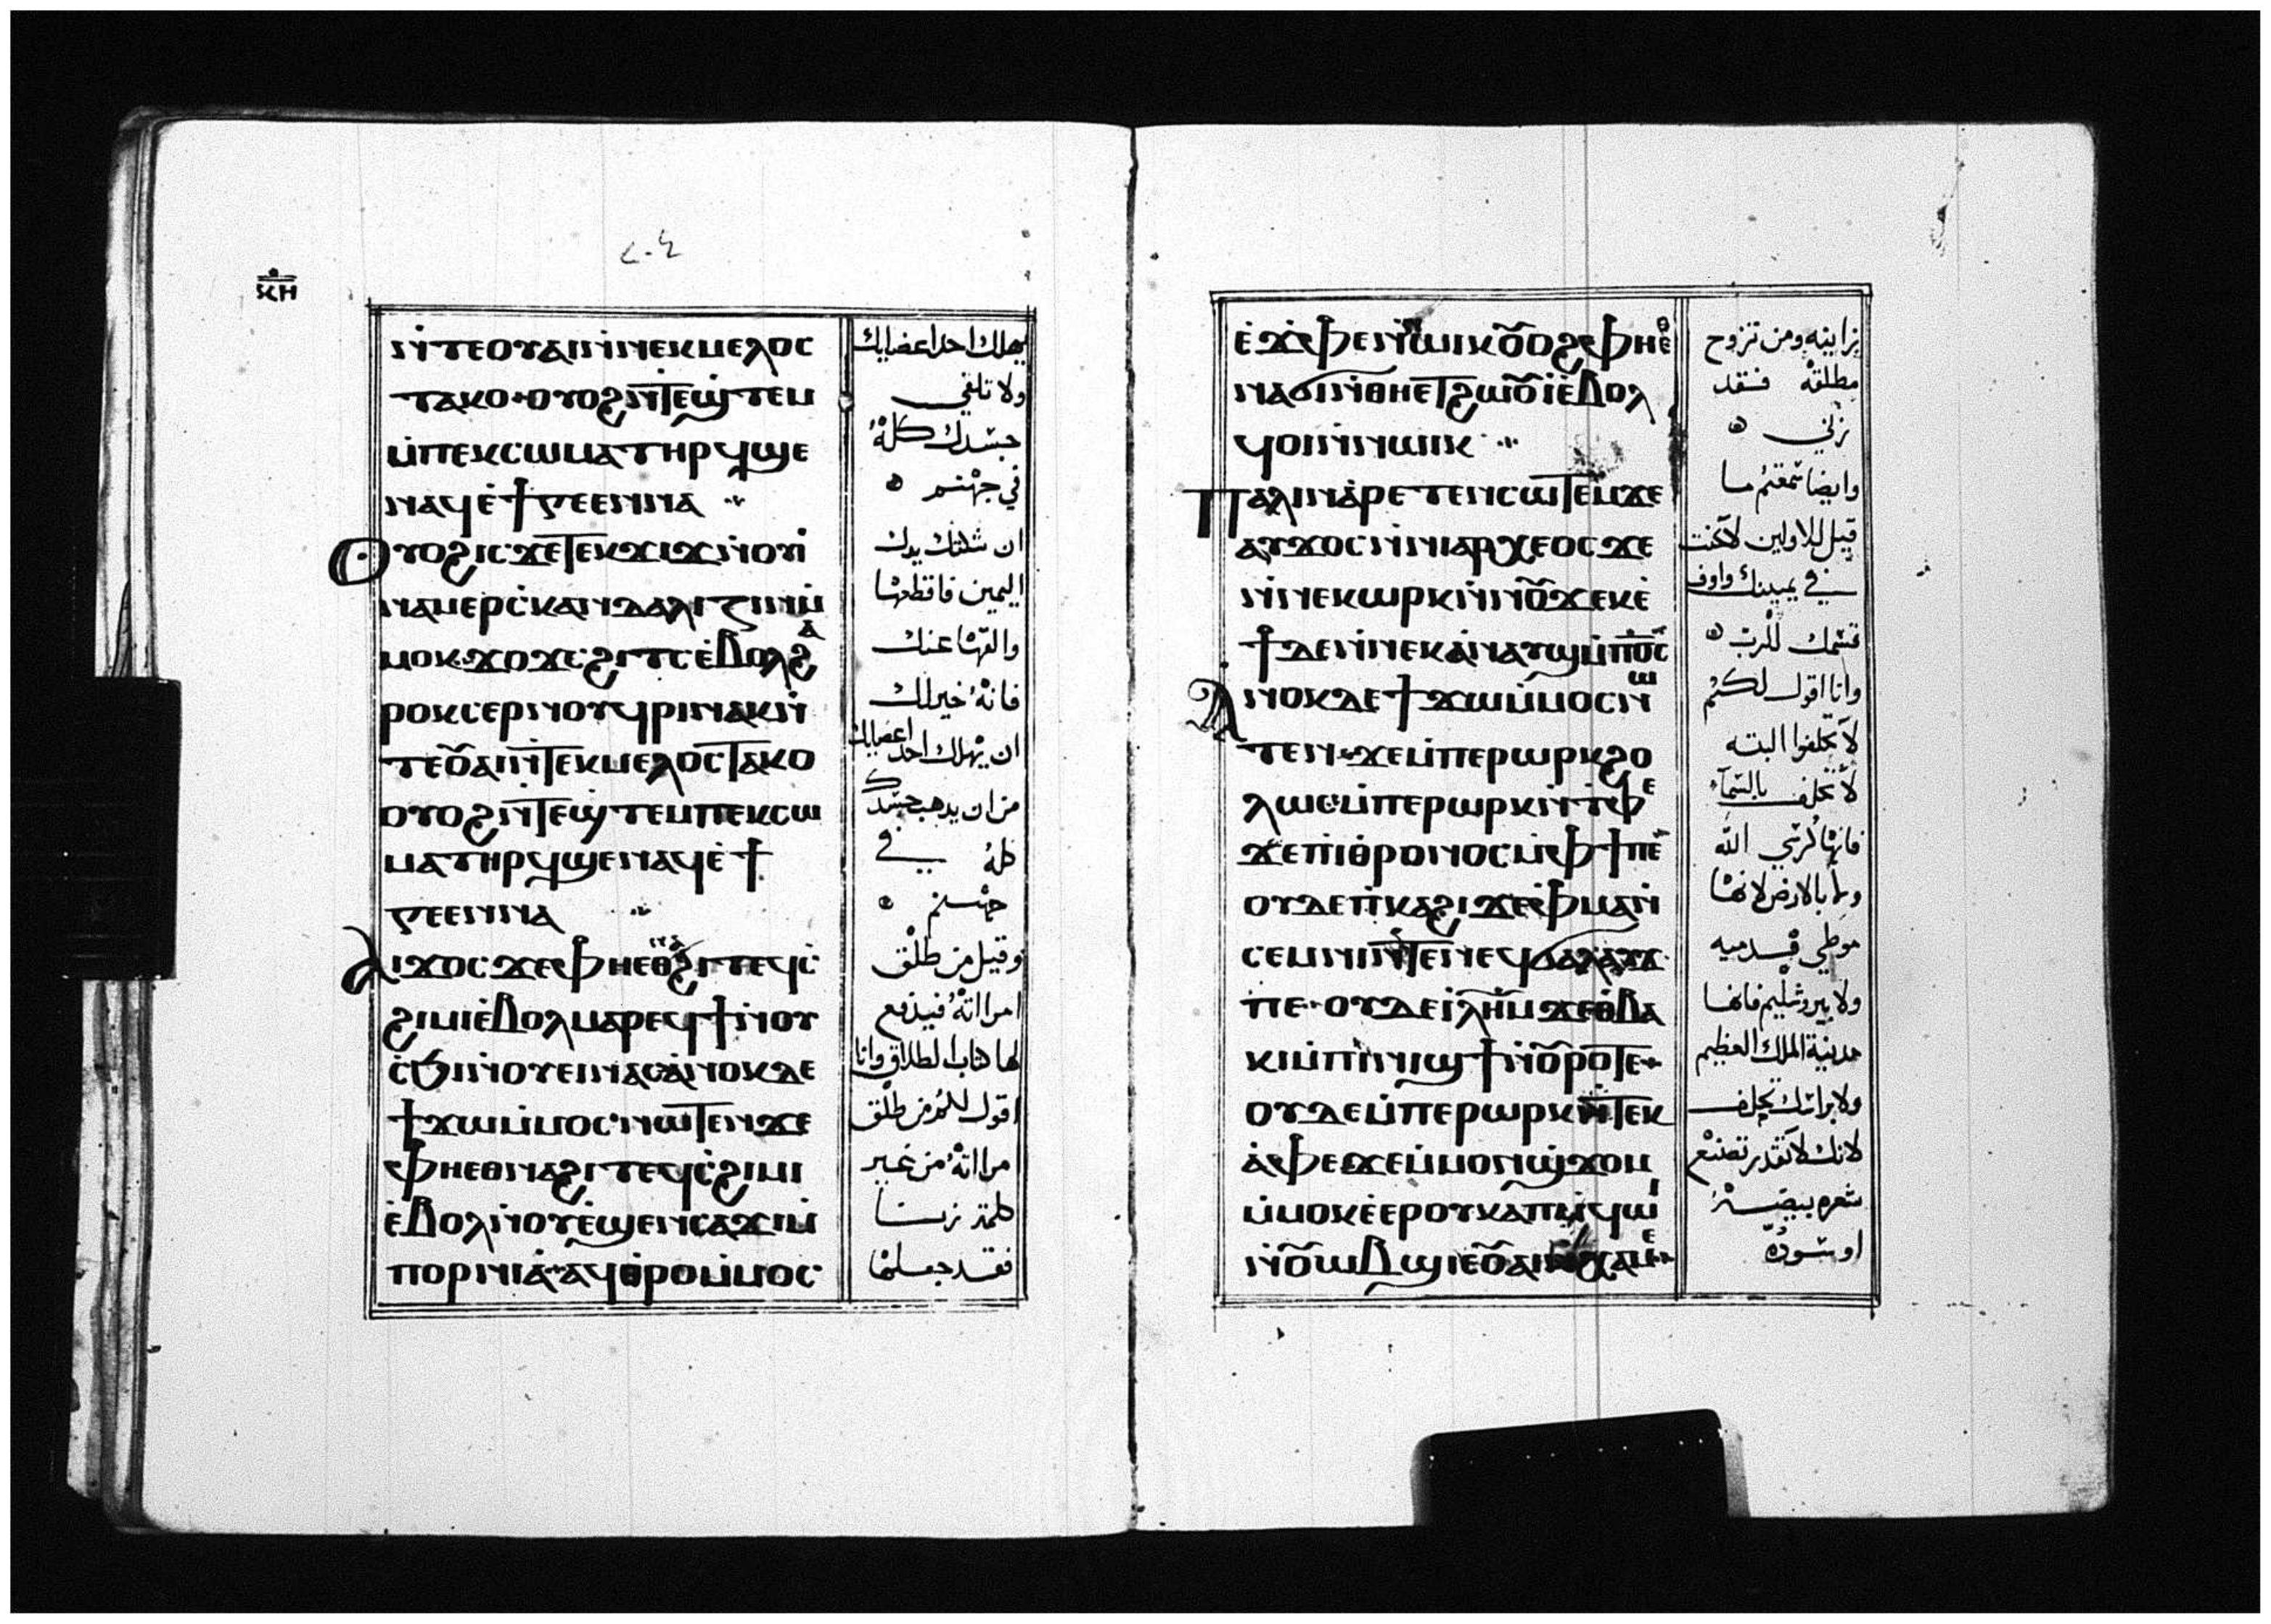 ⲕⲏ
ⲛ̀ⲧⲉⲟⲩⲁⲓⲛ̀ⲛⲉⲕⲙⲉⲗⲟⲥ
ⲧⲁⲕⲟ ⲟⲩⲟϩⲛ̀ⲧⲉϣ̀ⲧⲉⲙ
ⲙ̀ⲡⲉⲕⲥⲱⲙⲁⲧⲏⲣϥϣⲉ
ⲛⲁϥⲉ̀ϯⲅⲉⲉⲛⲛⲁ
Ⲟⲩⲟϩⲓⲥϫⲉⲧⲉⲕϫⲓϫⲛ̀ⲟⲩⲓ̀
ⲛⲁⲙⲉⲣⲥ̀ⲕⲁⲛⲇⲁⲗⲓⲍⲓⲛⲙ̀
ⲙⲟⲕ ϫⲟϫⲥ ϩⲓⲧⲥⲉ̀ⲃⲟⲗϩⲁ
ⲣⲟⲕⲥⲉⲣⲛⲟⲩϥⲣⲓⲛⲁⲕⲛ̀
ⲧⲉⲟⲩⲁⲓⲛ̀ⲧⲉⲕⲙⲉⲗⲟⲥⲧⲁⲕⲟ
ⲟⲩⲟϩⲛ̀ⲧⲉϣ̀ⲧⲉⲙⲡⲉⲕⲥⲱ
ⲙⲁⲧⲏⲣϥϣⲉⲛⲁϥⲉ̀ϯ
ⲅⲉⲉⲛⲛⲁ
ⲁⲓϫⲟⲥ ϫⲉⲫⲏⲉⲑⲛⲁϩⲓⲧⲉϥⲥ̀
ϩⲓⲙⲓⲉ̀ⲃⲟⲗⲙⲁⲣⲉϥϯⲛ̀ⲟⲩ
ⲥ̀ϧⲓⲛ̀ⲟⲩⲉⲓⲛⲁⲥⲁ̀ⲛⲟⲕⲇⲉ
ϯϫⲱⲙ̀ⲙⲟⲥ ⲛⲱⲧⲉⲛϫⲉ
ⲫⲏⲉⲑⲛⲁϩⲓⲧⲉϥⲥ̀ϩⲓⲙⲓ
ⲉ̀ⲃⲟⲗⲛ̀ⲟⲩⲉ̀ϣⲉⲛⲥⲁϫⲓⲙ̀
ⲡⲟⲣⲛⲓⲁ̀ ⲁϥⲑ̀ⲣⲟⲙ̀ⲙⲟⲥ
يهلك احد اعضايك
ولا تلقي
جسدك كله
في جهنم
ان شكتك يدك
اليمين فاقطعها
والقها عنك
فانه خير لك
ان يهلك احد اعضايك
من ان يذهب جسدك
كله في
جهنم
وقيل من طلق
امراته فيدفع
لها كتاب الطلاق وانا
اقول لكم من طلق
مراته من غير
كلمة زنا
فقد جعلها
ⲉ̀ϫⲉⲫⲉⲛⲱⲓⲕⲟⲩⲟϩⲫⲏⲉⲑ
ⲛⲁϭⲓⲛ̀ⲑⲏⲉⲧϩⲱⲟⲩⲓ̀ⲉ̀ⲃⲟⲗ
ϥⲟⲓⲛ̀ⲛⲱⲓⲕ
Ⲡⲁⲗⲓⲛⲁ̀ⲣⲉⲧⲉⲛⲥⲱⲧⲉⲙϫⲉ
ⲁⲩϫⲟⲥⲛ̀ⲛⲓⲁⲣⲭⲉⲟⲥϫⲉ
ⲛ̀ⲛⲉⲕⲱⲣⲕⲛ̀ⲛⲟⲩϫⲉⲕⲉ̀
ϯⲇⲉⲛ̀ⲛⲉⲕⲁ̀ⲛⲁⲩϣⲙ̀ⲡⲟ̅ⲥ̅
Ⲁⲛⲟⲕⲇⲉϯϫⲱⲙ̀ⲙⲟⲥⲛⲱ
ⲧⲉⲛ ϫⲉⲙ̀ⲡⲉⲣⲱⲣⲕϩⲟ
ⲗⲱⲥⲙ̀ⲡⲉⲣⲱⲣⲕⲛ̀ⲧ̀ⲫⲉ
ϫⲉⲡⲓⲑ̀ⲣⲟⲛⲟⲥⲙ̀ⲫϯⲡⲉ
ⲟⲩⲇⲉⲡ̀ⲕⲁϩⲓϫⲉⲫⲙⲁⲛ̀
ⲥⲉⲙⲛⲓⲛ̀ⲧⲉⲛⲉϥϭⲁⲗⲁⲩϫ
ⲡⲉ ⲟⲩⲇⲉⲓ̀ⲗⲏⲙϫⲉⲑ̀ⲃⲁ
ⲕⲓⲙ̀ⲡⲓⲛⲓϣϯⲛ̀ⲟⲩⲣⲟⲧⲉ
ⲟⲩⲇⲉⲙ̀ⲡⲉⲣⲱⲣⲕⲛ̀ⲧⲉⲕ
ⲁ̀ⲫⲉϫⲉⲙ̀ⲙⲟⲛϣ̀ϫⲟⲙ
ⲙ̀ⲙⲟⲕⲉ̀ⲉⲣⲟⲩⲕⲁⲡⲙ̀ϥⲱⲓ
ⲛ̀ⲟⲩⲱⲃϣⲓⲉⲟⲩⲁⲓⲛ̀ⲭⲁⲙⲉ
بزانيه ومن تزوج
مطلقة فقد
زني
وايضا سمعتم ما
قيل للاولين لا تحنث
في يمينك واوف
قسمك للرب
وانا اقول لكم
لا تحلفوا البته
لا تحلف بالسماء
فانها كرسي الله
ولا بالارض لانها
موطي قدميه
ولا بيروشليم فانها
مدينة الملك العظيم
ولا براسك تحلف
لانك لا تقدر تصنع
شعره بيضه
او سوده